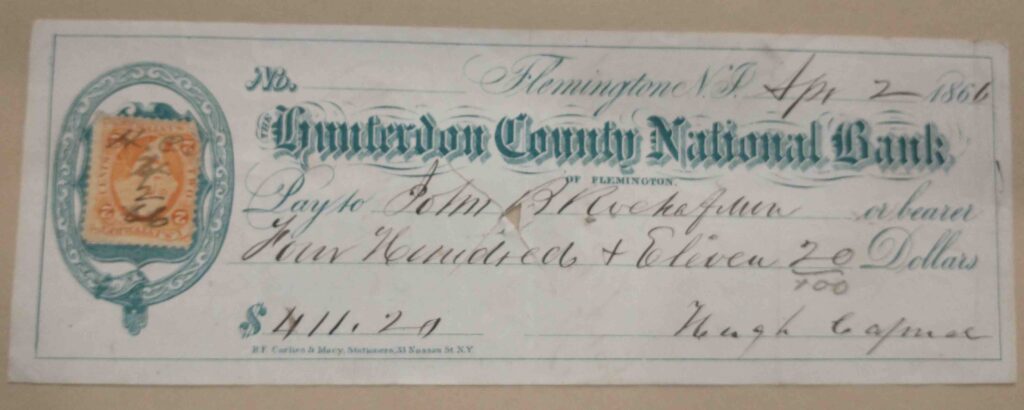 No. Flemington N.J. Apr 2 1866
THE Hunterdon County National Bank
OF FLEMINGTON.
Pay to John B or bearer
Four Hundred + Eleven 20/100 Dollars
$411.20 Hugh Capner
B.F. Corlies & Macy, Stationers, 33 Nassau St. N.Y.